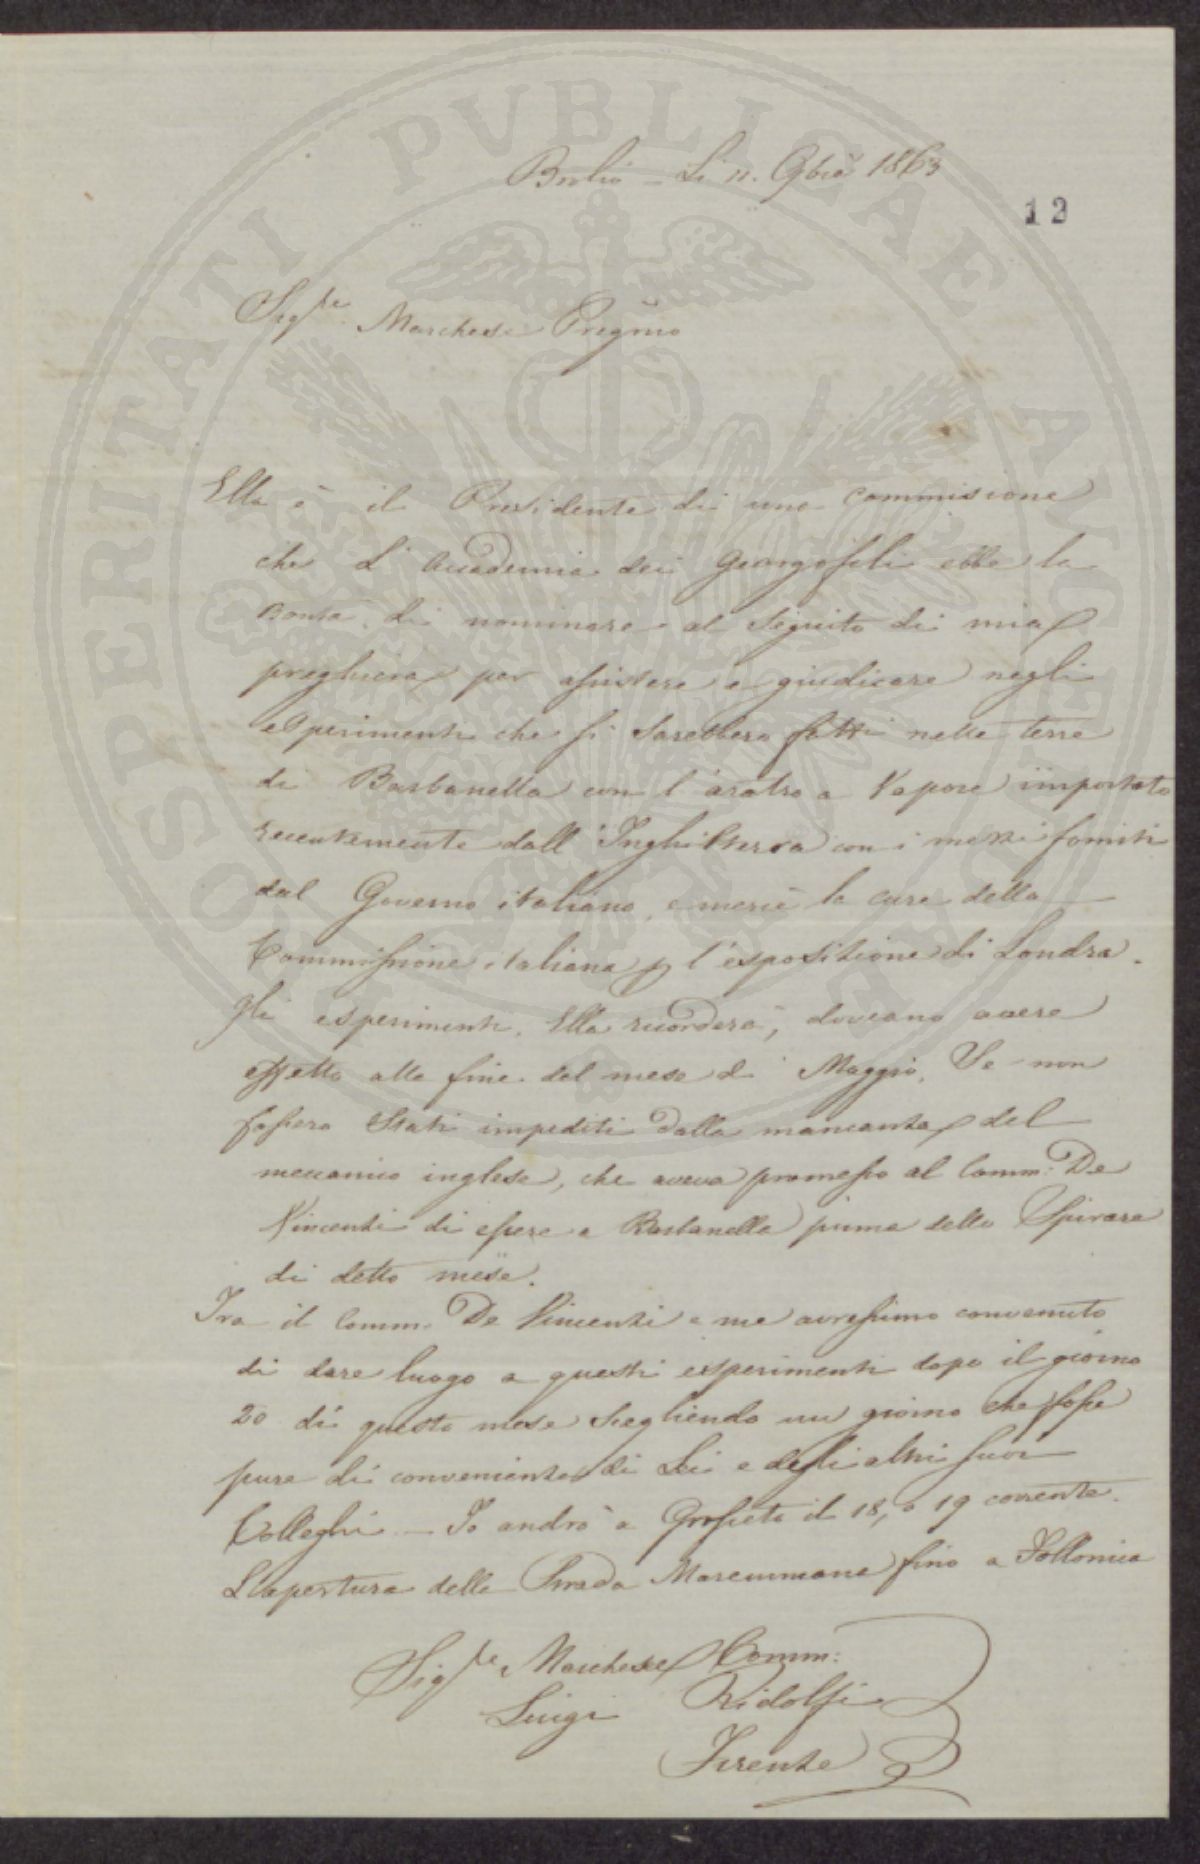 Brolio - Li 11. 9bre 1863
12
Sigre Marchese Pregmo
Ella è il Presidente di una Commisione
che L'Accademia dei Georgofili ebbe la
Bontà di nominare al Seguito di mia
preghiera per assistere e giudicare negli
esperimenti che si Sarebbero fatti nelle terre
di Barbanella con l'aratro a Vapore importato
recentemente dall'Inghilterra con i mezzi forniti
dal Governo italiano, e mercè le cure della
Commissione italiana p l'esposizione di Londra.
Gli esperimenti, Ella ricorderà, doveano avere
effetto alla fine del mese di Maggio, Se non
fossero Stati impediti dalla mancanza del
meccanico inglese, che aveva promesso al Comm: De
Vincenzi di essere a Barbanella prima dello Spirare
di detto mese.
Tra il Comm. De Vincenzi e me avressimo convenuto
di dare luogo a questi esperimenti dopo il giorno
20 di questo mese Scegliendo un giorno che fosse
pure di convenienza di Lei e degli altri suoi
Colleghi - Io andrò a Grosseto il 18, o 19 corrente.
L'apertura della Strada Maremmana fino a Follonica
Sigre Marchese Comm:
Luigi Ridolfi
Firenze
PVBLICAE
AVGENDAE
PROSPERITATI